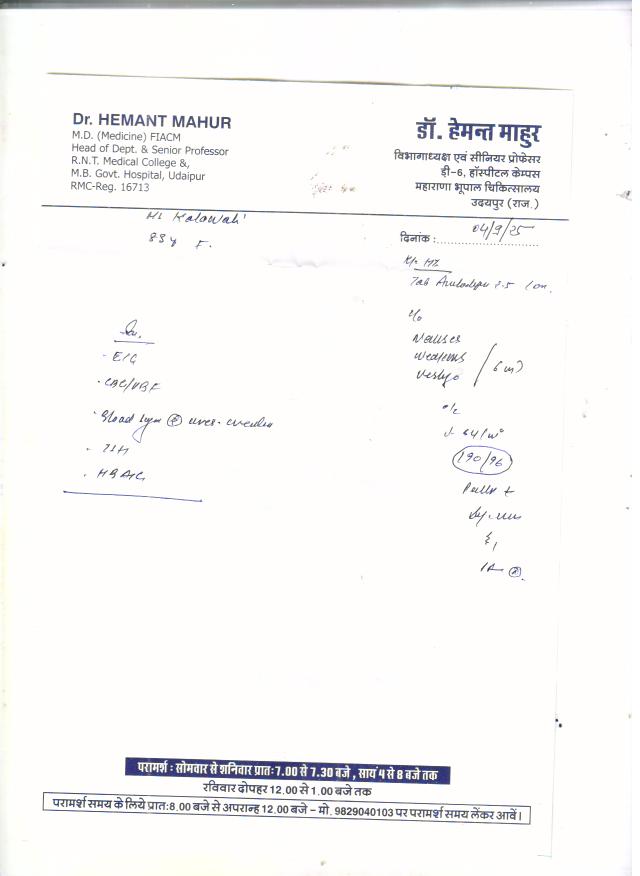 Dr. HEMANT MAHUR
M.D. (Medicine) FIACM
Head of Dept. & Senior Professor
R.N.T. Medical College &,
M.B. Govt. Hospital, Udaipur
RMC-Reg. 16713
डॉ. हेमन्त माहुर
विभागाध्यक्ष एवं सीनियर प्रोफेसर
डी-6, हॉस्पीटल केम्पस
महाराणा भूपाल चिकित्सालय
उदयपुर (राज.)
Kalawati
85y F.
दिनांक : 04/9/25
Tab 2.5
c/o
Nausea
Weakness
Vertigo
o/e
190/96
Pallor +
- ECG
- CBC/PBF
- Blood
- TSH
- HBA1C
परामर्श : सोमवार से शनिवार प्रातः 7.00 से 7.30 बजे , सायं 4 से 8 बजे तक
रविवार दोपहर 12.00 से 1.00 बजे तक
परामर्श समय के लिये प्रातः 8.00 बजे से अपरान्ह 12.00 बजे – मो. 9829040103 पर परामर्श समय लेंकर आवें।